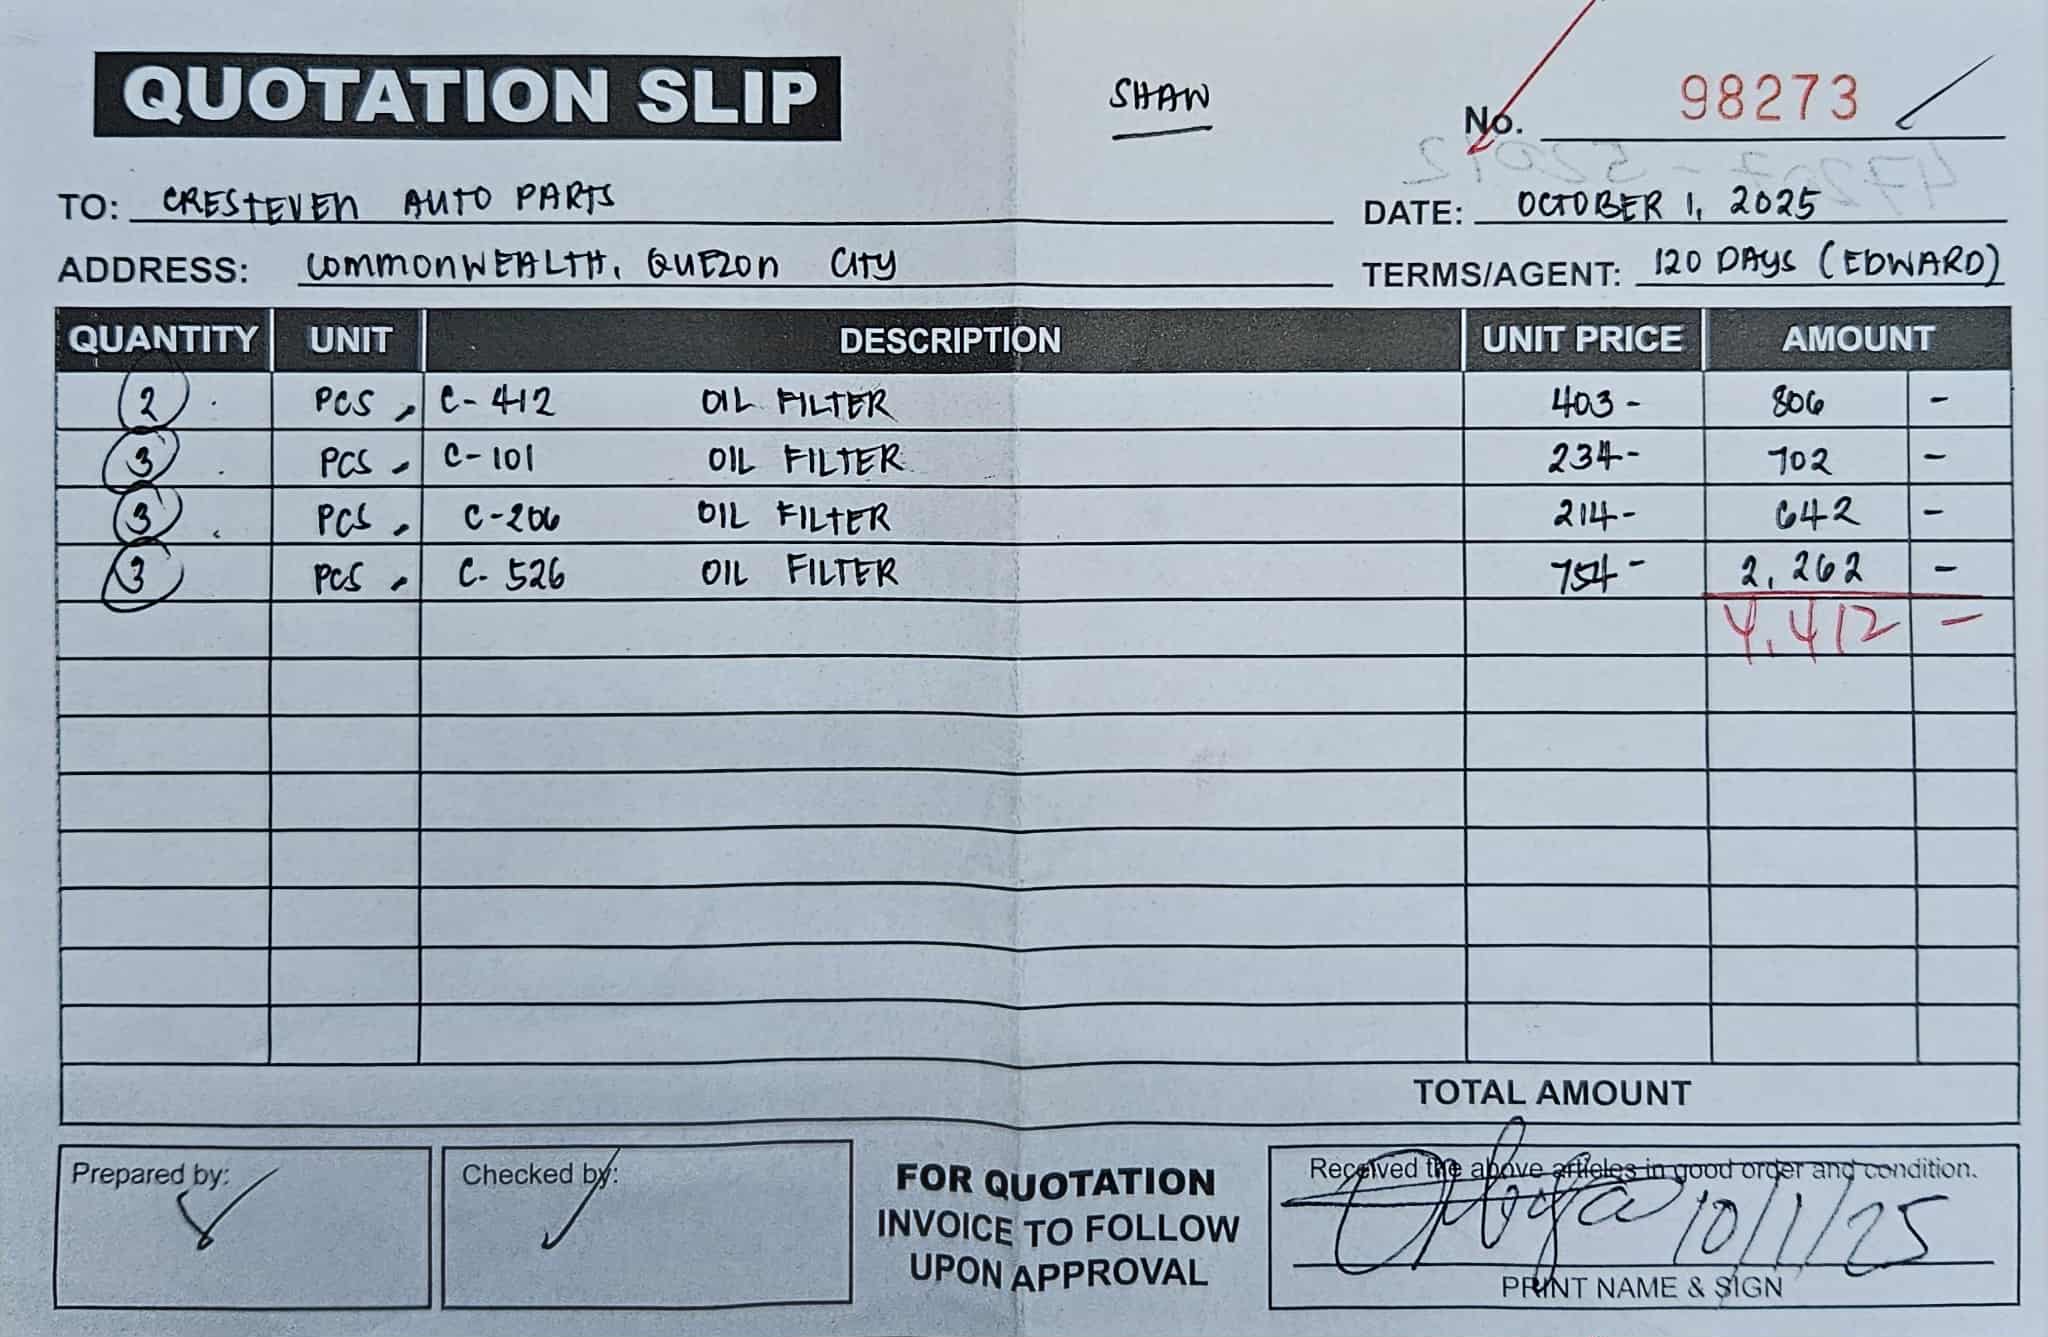 QUOTATION SLIP
SHAW
No. 98273
TO: CRESTEVEN AUTO PARTS
DATE: OCTOBER 1, 2025
ADDRESS: COMMONWEALTH, QUEZON CITY
TERMS/AGENT: 120 DAYS (EDWARD)
QUANTITY UNIT DESCRIPTION UNIT PRICE AMOUNT
2 PCS C-412 OIL FILTER 403- 806 -
3 PCS C-101 OIL FILTER 234- 702 -
3 PCS C-206 OIL FILTER 214- 642 -
3 PCS C-526 OIL FILTER 754- 2,262 -
4,412 -
TOTAL AMOUNT
Prepared by:
Checked by:
FOR QUOTATION
INVOICE TO FOLLOW
UPON APPROVAL
Received the above articles in good order and condition.
10/1/25
PRINT NAME & SIGN